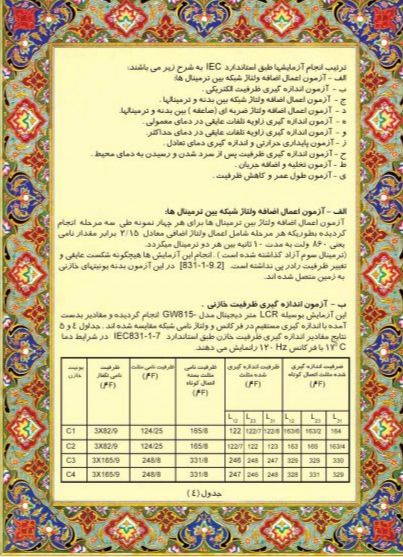 ترتیب انجام آزمایشها طبق استاندارد IEC به شرح زیر می باشند:
الف - آزمون اعمال اضافه ولتاژ شبکه بین ترمینال ها:
ب - آزمون اندازه گیری ظرفیت الکتریکی .
ج - آزمون اعمال اضافه ولتاژ شبکه بین بدنه و ترمینالها .
د - آزمون اعمال اضافه ولتاژ ضربه ای (صاعقه ) بین بدنه و ترمینالها.
ه - آزمون اندازه گیری زاویه تلفات عایقی در دمای معمولی .
و - آزمون اندازه گیری زاویه تلفات عایقی در دمای حداکثر.
ز - آزمون پایداری حرارتی و اندازه گیری دمای تعادل .
ح - آزمون اندازه گیری ظرفیت پس از سرد شدن و رسیدن به دمای محیط .
ط - آزمون تخلیه و اضافه جریان .
ی - آزمون طول عمر و کاهش ظرفیت .
الف - آزمون اعمال اضافه ولتاژ شبکه بین ترمینال ها:
آزمون اعمال اضافه ولتاژ بین ترمینال ها برای هر چهار نمونه طی سه مرحله انجام
گردیده بطوریکه هر مرحله شامل اعمال ولتاژ اضافی معادل ۲/۱۵ برابر مقدار نامی
یعنی ۸۶۰ ولت به مدت ۱۰ ثانیه بین هر دو ترمینال میگردد.
(ترمینال سوم آزاد گذاشته شده است ) . انجام این آزمایش ها هیچگونه شکست عایقی و
تغییر ظرفیت رادر پی نداشته است. [831-1-9.2] در این آزمون بدنه یونیتهای خازنی
به زمین متصل شده اند.
ب - آزمون اندازه گیری ظرفیت خازنی .
این آزمایش بوسیله LCR متر دیجیتال مدل GW815- انجام گردیده و مقادیر بدست
آمده با اندازه گیری مستقیم در فرکانس و ولتاژ نامی شبکه مقایسه شده اند . جداول ٤ و ٥
نتایج مقادیر اندازه گیری ظرفیت خازن طبق استاندارد IEC831-1-7 در شرایط دما
۱۷°C با فرکانس ۱۲۰ Hz رانمایش می دهند.
یونیت خازنی | ظرفیت نامی تکفاز (μF) | ظرفیت نامی مثلث (μF) | ظرفیت نامی مثلث بسته اتصال کوتاه (μF) | ظرفیت اندازه گیری شده مثلث (μF) | ظرفیت اندازه گیری شده مثلث اتصال کوتاه (μF)
L12 L23 L31 L12 L23 L31
C1 3X82/9 124/25 165/8 122 122/7 122/6 163/6 163/2 164
C2 3X82/9 124/25 165/8 122/7 122 123 163 165 163/4
C3 3X165/9 248/8 331/8 246 248 247 329 329 330
C4 3X165/9 248/8 331/8 247 246 248 328 331 329
جدول (٤)